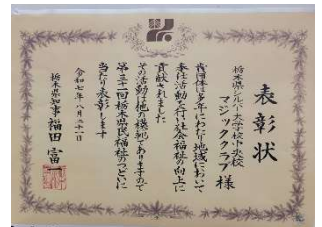 表彰状
栃木県シルバー大学校中央校
マジッククラブ 様
貴団体は多年にわたり地域において
奉仕活動を行い社会福祉の向上に
貢献されました
その活動は他の模範でありますので
第三十一回栃木県民福祉のつどいに
当たり表彰します
令和七年八月二十一日
栃木県知事 福田富一